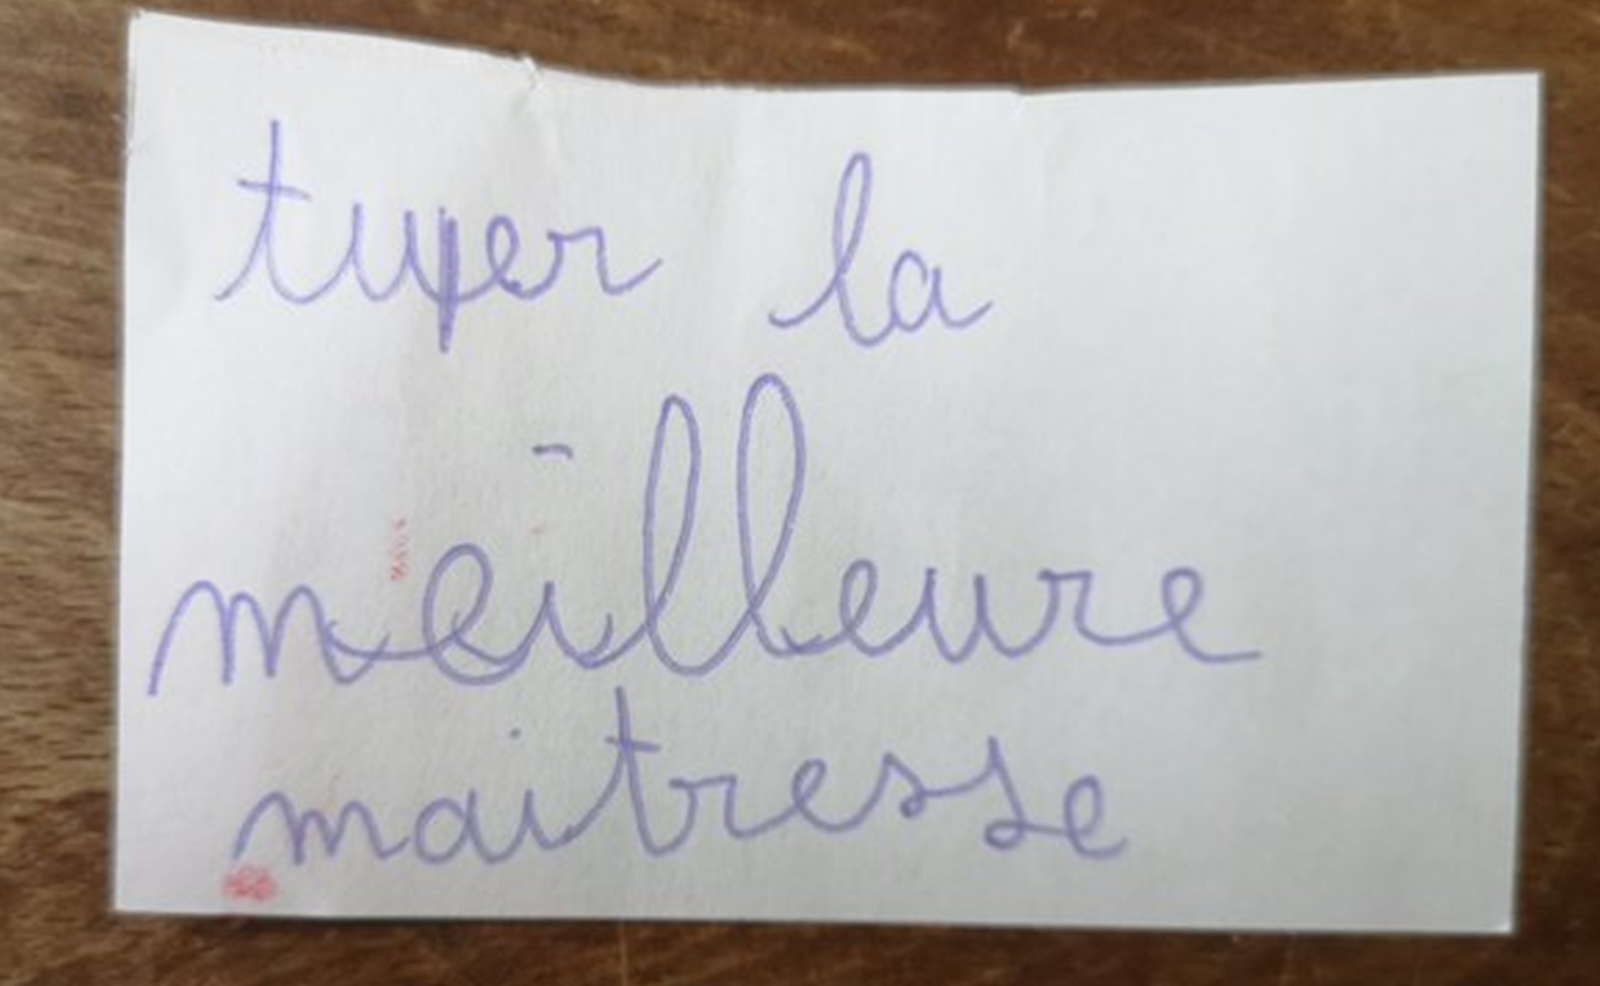 tu|er la
meilleure
maitresse